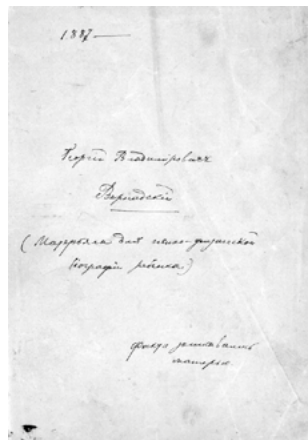 1887 —
Георгій Владиміровичъ
Вернадскій
(Матерьялы для психо-физической
біографіи ребенка)
факты записаны
матерью